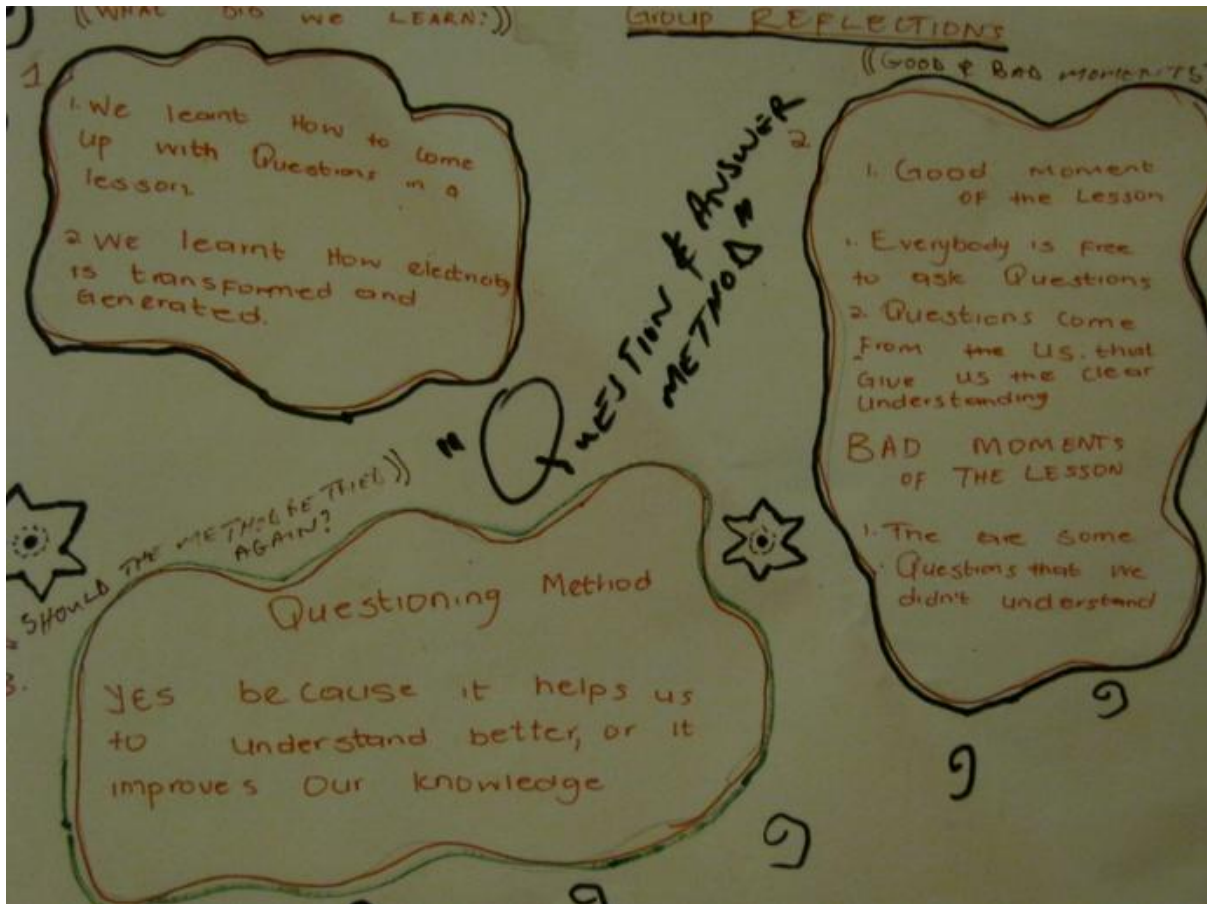 ((WHAT DID WE LEARN?))
Group REFLECTIONS
((GOOD & BAD MOMENTS
1
1. We learnt How to come
up with Questions in a
lesson
2 We learnt How electricity
is transformed and
Generated.
"QUESTION & ANSWER
METHOD"
2.
1. Good moment
OF the Lesson
1. Everybody is free
to ask Questions
2. Questions come
From the US. that
Give us the clear
Understanding
BAD MOMENTS
OF THE LESSON
1. The are some
Questions that we
didn't understand
SHOULD THE METHOD BE TRIED))
AGAIN?
3.
Questioning Method
YES because it helps us
to understand better, or it
improves Our knowledge